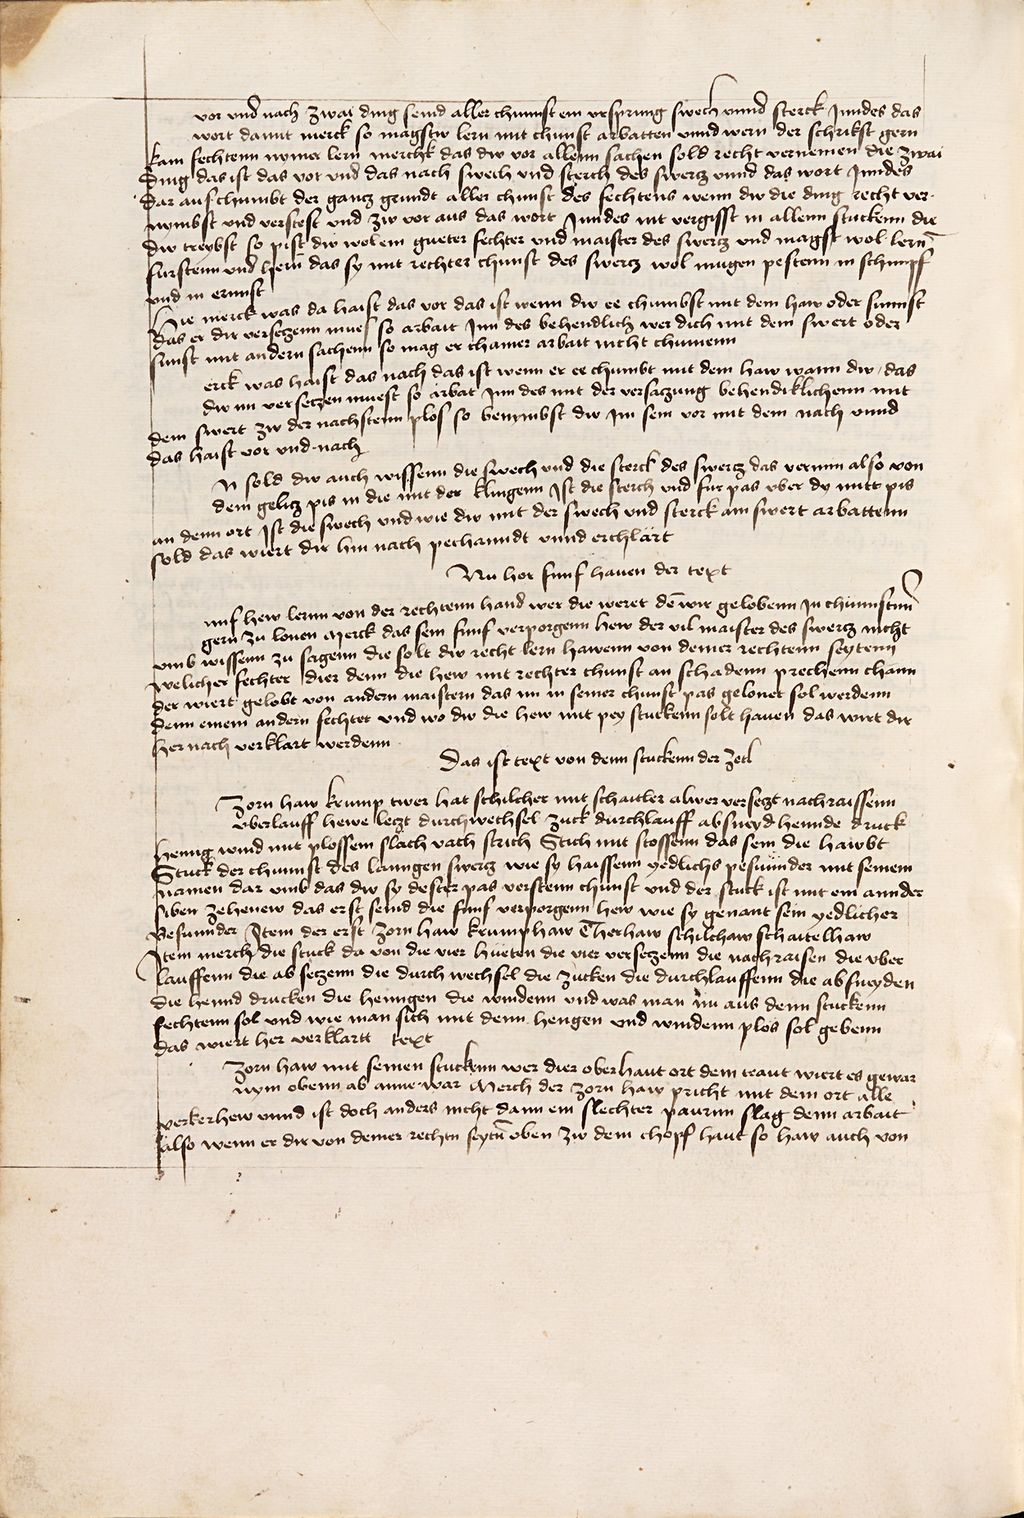 vor vnd nach zwai ding send aller chunnst ein vrsprung swech vnnd sterck Inndes das
wort damit merck so magstw lern mit chunst arbatten vnnd wern der schrikst gern
kain fechtenn nymer lern merchk das dw vor allenn sachen sold recht vernemen die zwai
Ding das ist das vor vnd das nach swech vnd sterch des swertz vnnd das wort Inndes
Dar auf chumbt der gantz grundt aller chunst des fechtens wenn dw die ding recht ver-
nymbst vnd verstest vnd zw vor aus das wort Inndes nit vergisst in allenn stuckenn die
dw treybst so pist dw wol ein gueter fechter vnd maister des swertz vnd magst wol lern
furstenn vnd hern das sy mit rechter chunst des swertz wol mugen pestenn in schimpf
vnd in ernnst
Hie merck was da haist das vor das ist wenn dw ee chumbst mit dem haw oder sunnst
das er dir versetzenn mues so arbait Inn des behendlich wer dich mit dem swert oder
sunst mit andern sachenn so mag er chainer arbait nicht chumenn
erck was haist das nach das ist wenn er ee chumbt mit dem haw wann dw das
dw im versetzen muest so arbat Inn des mit der versatzung behendiklichenn mit
dem swert zw der nachstenn plos so benymbst dw im sein vor mit dem nach vnnd
das haist vor vnd nach
N sold dw auch wissenn die swech vnd die sterck des swertz das vernim also von
dem gehiltz pis in die mit der klingenn Ist die sterch vnd fur pas vber dy mitt pis
an denn ort Ist die swech vnd wie dw mit der swech vnd sterck am swert arbattenn
sold das wiert dir hin nach pechanndt vnnd erchlärt
Nu hor funf hauen der text
unf hew lernn von der rechtenn hand wer die weret den wir gelobenn In chunnstenn
gern zu lonen Merck das sein funf verporgenn hew der vil maister des swertz nicht
vmb wissenn zu sagenn die solt dw recht lern hawenn von deiner rechtenn seytenn
welicher fechter dier denn die hew mit rechter chunst an schadenn prechenn chann
der wiert gelobt von andern maistern das im in seiner chunst pas gelonet sol werdenn
denn einem andern fechter vnd wo dw die hew mit pey stuckenn solt hauen das wirt dir
her nach verklart werdenn
Das ist text von denn stuckenn der zetl
Zorn haw krump twer hat schilcher mit schaitler alwer versetzt nachraissenn
vberlauff hewe letzt durchwechsel zuck durchlauff absneyd hennde druck
henng wind mit plossem slach vach strich Stich mit stossenn das sein die hawbt
Stuck der chunnst des lanngen swertz wie sy haissenn yedlichs pesunnder mit seinem
namen dar vmb das dw sy dester pas verstenn chunst vnd der stuck ist mit ein annder
siben zehenew das erst seind die funf verporgenn hew wie sy genant sein yedlicher
Besunnder Item der erst zorn haw krumphaw Twerhaw schilchaw schaitelhaw
Item merch die stuck da von die vier hueten die vier versetzenn die nachraisen die vber
lauffenn die ab setzenn die durch wechsel die zucken die durchlauffenn die absneyden
die hennd drucken die henngen die windenn vnd was man nu aus denn stuckenn
fechtenn sol vnd wie man sich mit denn hengen vnd windenn plos sol gebenn
das wiert her verklartt text
Zorn haw mit seinen stuckenn wer dier oberhaut ort dem traut wiert es gewar
nym obenn ab anne war Merch der zorn haw pricht mit dem ort alle
verkerhew vnnd ist doch anders nicht dann ein slechter paurnn slag denn arbait
also wenn er dir von deiner rechtn seytn oben zw dem chopf haut so haw auch von